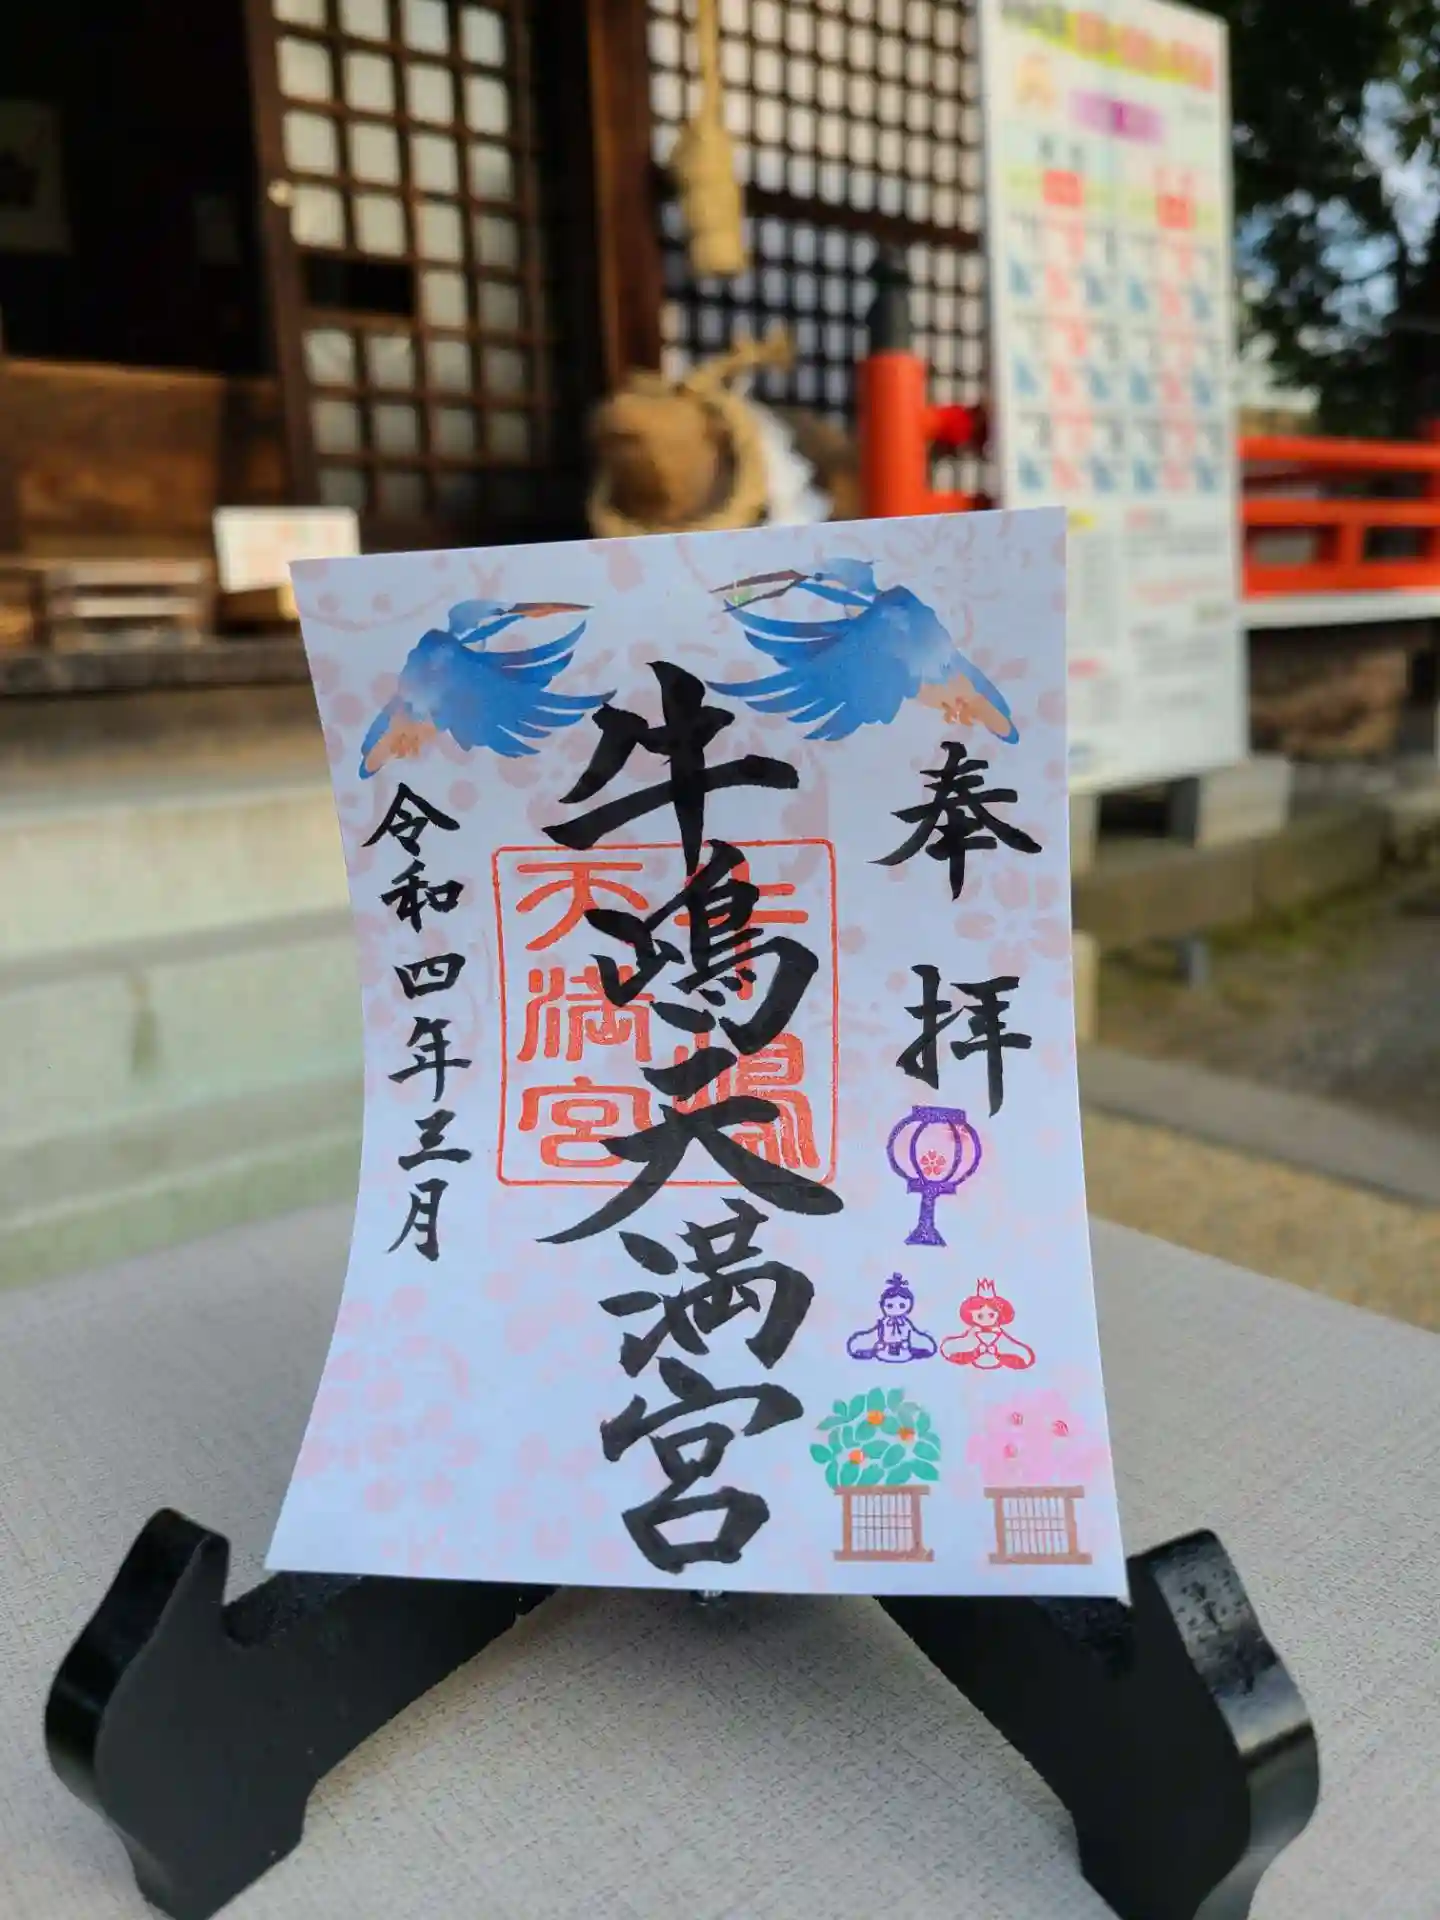 奉拝
牛嶋天満宮
牛嶋
天満宮
令和四年三月